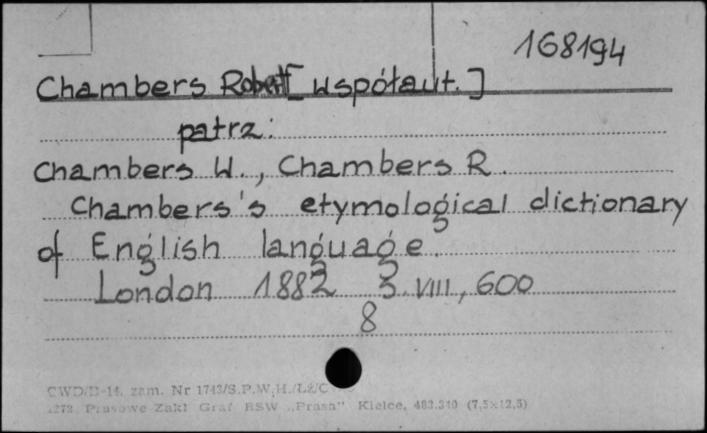 168194
Chambers Robert [współaut.]
patrz:
Chambers W., Chambers R.
Chambers's etymological dictionary
of English language.
London 1882 3. VIII, 600
8
CWD/D-14. zam. Nr 1743/S.P.W.H./LZ/C
Prasowe Zakł Graf RSW „Prasa" Kielce, 483.310 (7,5×12,5)